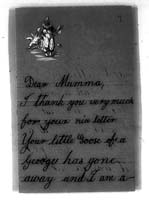 Dear Mumma,
I thank you very much
for your nice letter
Your little Goose of a
George has gone
away and I am a